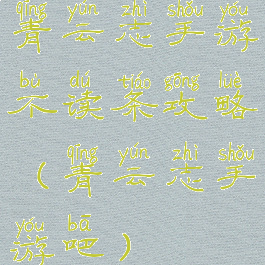 qīng yún zhì shǒu yóu
青云志手游
bù dú tiáo gōng lüè
不读条攻略
qīng yún zhì shǒu
（青云志手
yóu bā
游吧）